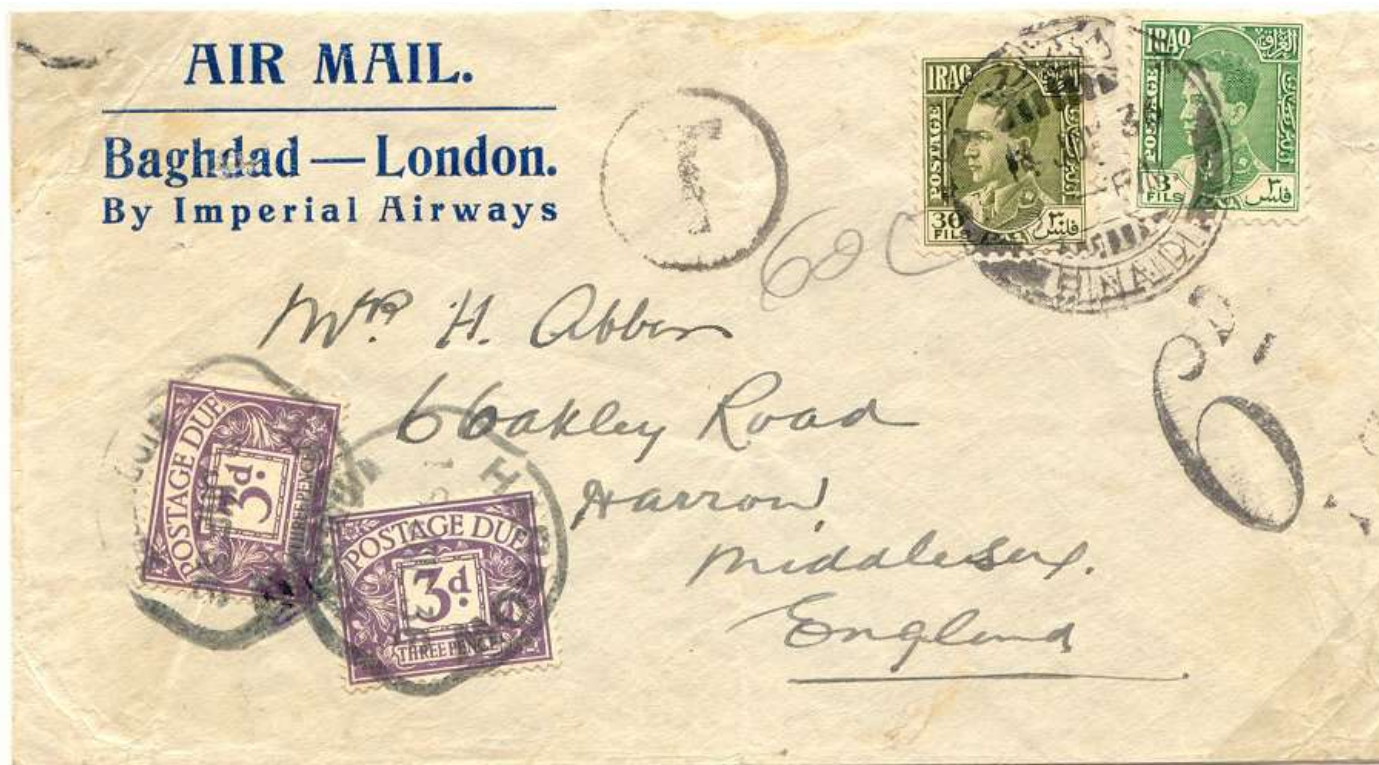 AIR MAIL.
Baghdad — London.
By Imperial Airways
T
60 C
IRAQ العراق
POSTAGE
30 ٣٠
FILS فلس
IRAQ العراق
POSTAGE
3 ٣
FILS فلس
HINAIDI
6D.
Mr. H. Abben
6 Oakley Road
Harrow,
Middlesex.
England
POSTAGE DUE
3d.
THREE PENCE
POSTAGE DUE
3d
THREE PENCE